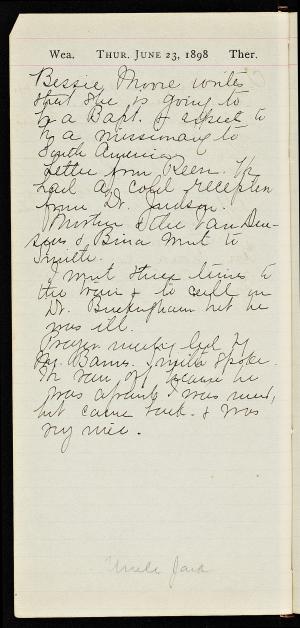 Wea. THUR. JUNE 23, 1898 Ther.
Bessie Moore writes
that she is going to
be a Bapt. & expects to
be a missionary to
South America
Letter from Keen. He
had a cool reception
from Dr. Judson.
Mother & the Van Deu-
sens & Bina went to
Smith.
I went three times to
the train & to call on
Dr. Buckingham but he
was ill.
Prayer meeting led by
Mr. Barnes. Smith spoke.
He ran off because he
was afraid I was mad,
but came back & was
very nice.
Uncle Jack